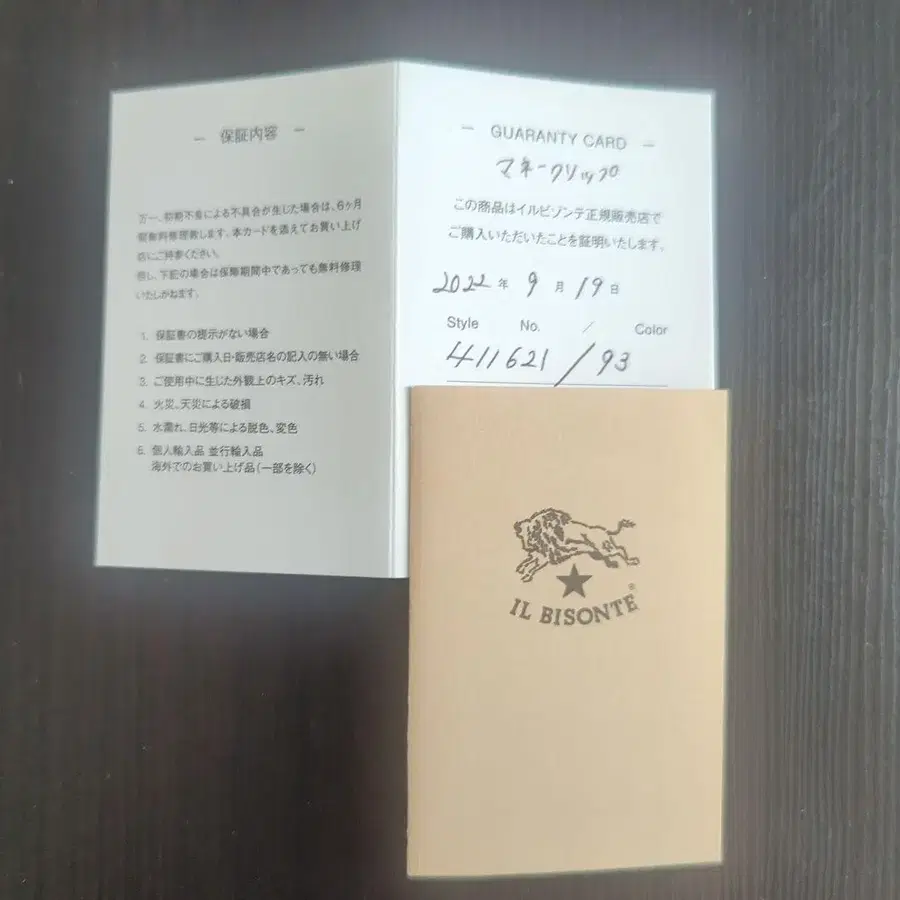 ― 保証内容 ―
万一、初期不良による不具合が生じた場合は、6ヶ月
間無料修理致します。本カードを添えてお買い上げ
店にご持参ください。
但し、下記の場合は保障期間中であっても無料修理
いたしかねます。
1. 保証書の提示がない場合
2. 保証書にご購入日・販売店名の記入の無い場合
3. ご使用中に生じた外観上のキズ、汚れ
4. 火災、天災による破損
5. 水濡れ、日光等による脱色、変色
6. 個人輸入品 並行輸入品
海外でのお買い上げ品(一部を除く)
― GUARANTY CARD ―
マネークリップ
この商品はイルビゾンテ正規販売店で
ご購入いただいたことを証明いたします。
2022年 9月 19日
Style No. / Color
411621 / 93
IL BISONTE®